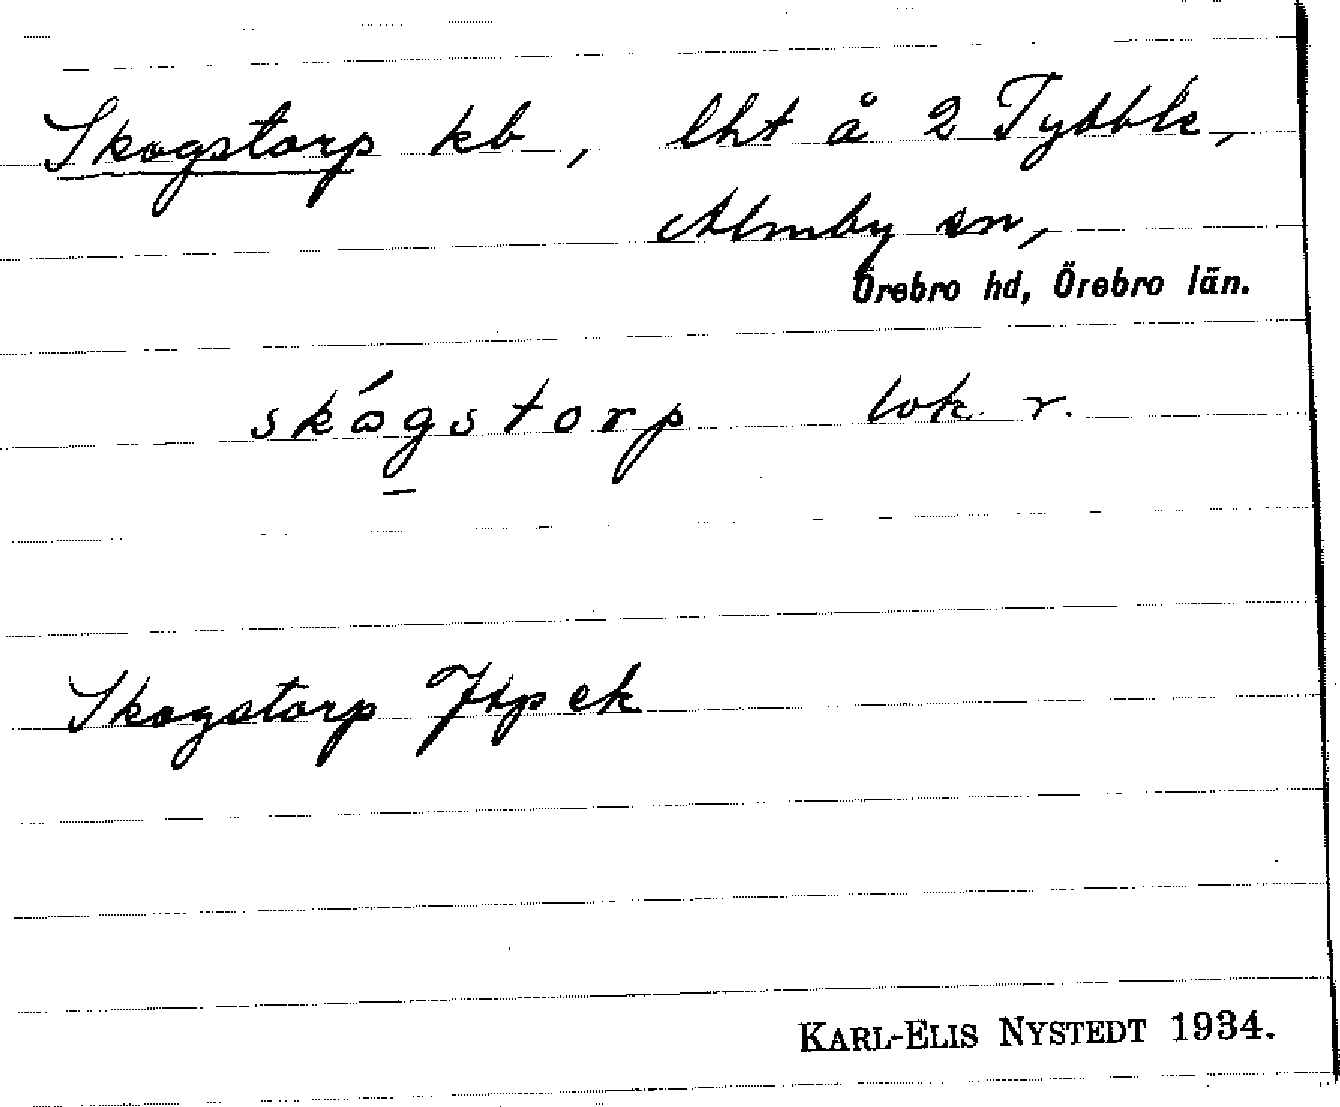 Skogstorp kb, lht å 2 Tybble,
Almby sn,
Örebro hd, Örebro län.
skógstorp lok r.
Skogstorp Jtp ek
KARL-ELIS NYSTEDT 1934.